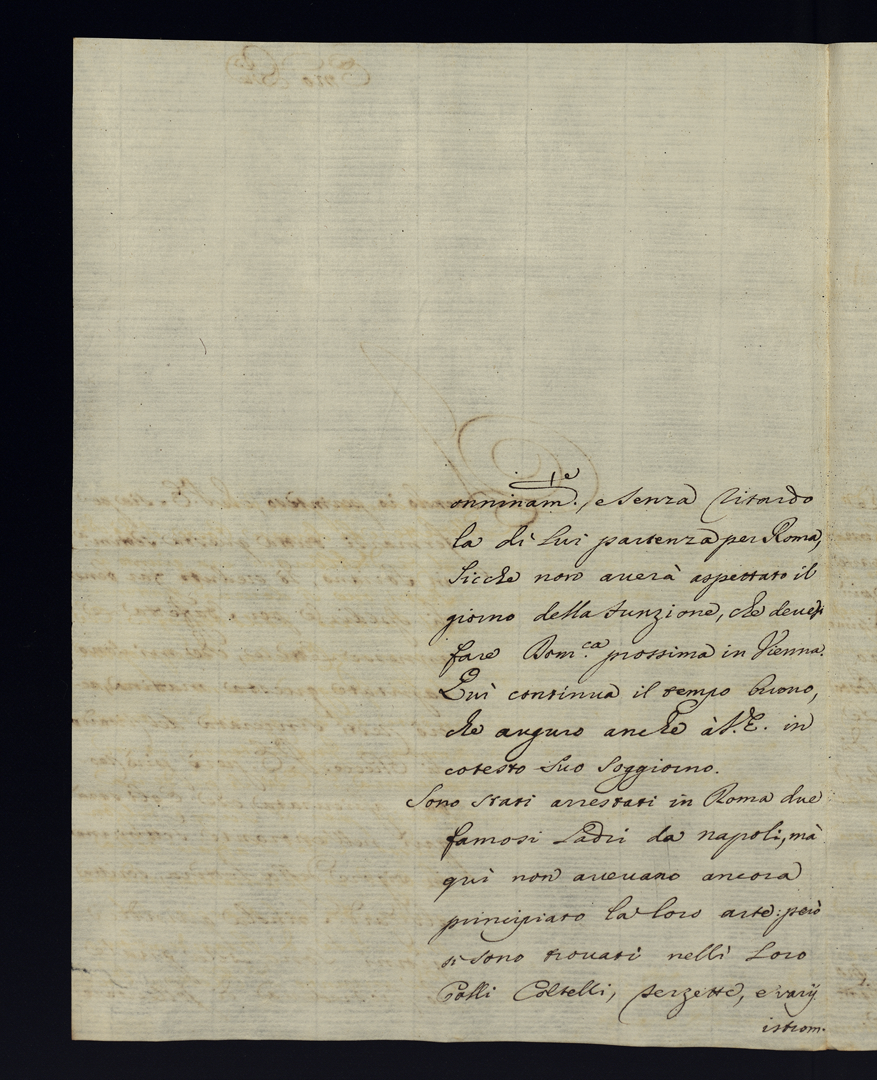 onninam.te, e senza ritardo
la di lui partenza per Roma,
sicche non averà aspettato il
giorno della funzione, che devesi
fare Dom.ca prossima in Vienna.
Quì continua il tempo buono,
che auguro anche à V.E. in
cotesto suo soggiorno.
Sono stati arrestati in Roma due
famosi Ladri da napoli, mà
quì non avevano ancora
principiato la loro arte: però
si sono trovati nelli Loro
Coltelli, terzette, e varij
istrom.